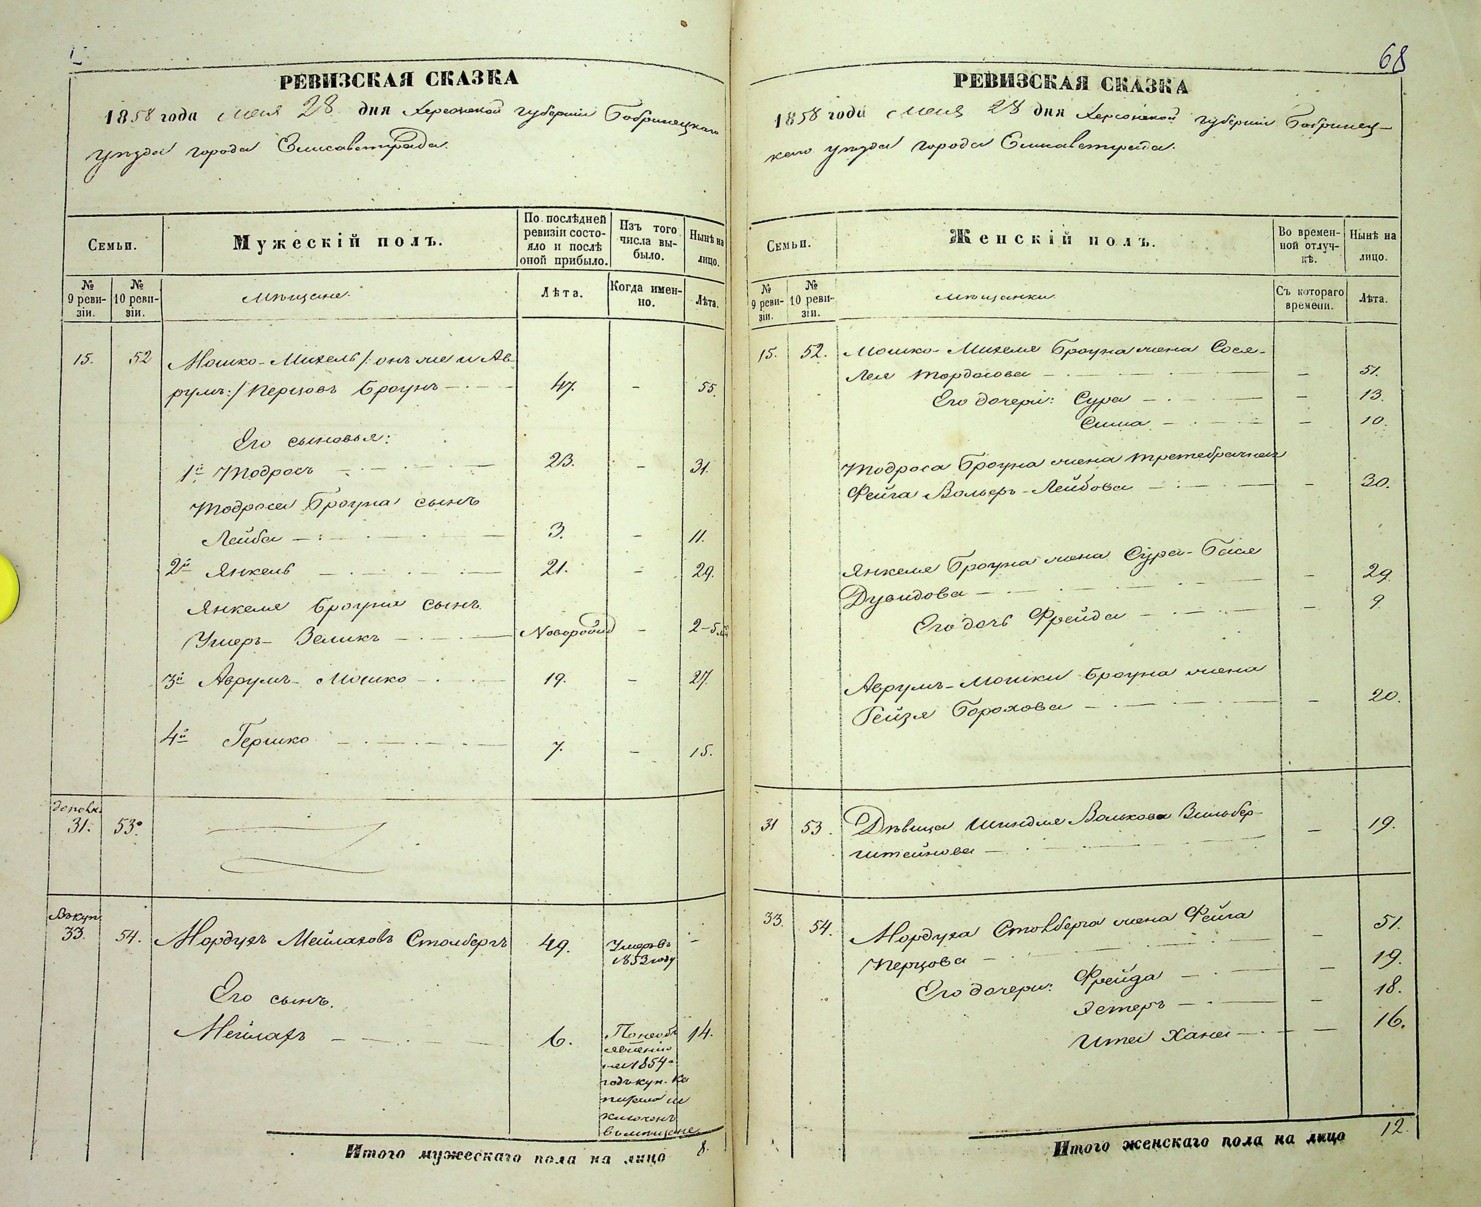 68
РЕВИЗСКАЯ СКАЗКА
1858 года Мая 28 дня Херсонской губернии Бобринецкаго
уѣзда города Елисаветграда.
Семьи.
Мужескій полъ.
По послѣдней
ревизіи состо-
яло и послѣ
оной прибыло.
Изъ того
числа вы-
было.
Нынѣ на
лицо.
№
9 реви-
зіи.
№
10 реви-
зіи.
Мѣщане.
Лѣта.
Когда имен-
но.
Лѣта.
15. 52 Мошко-Михель /:онъ же и Ав
румъ:/ Перцовъ Броунъ 47. - 55.
Его сыновья:
1й Тодросъ 23. - 31.
Тодроса Броуна сынъ
Лейба 3. - 11.
2й Янкель 21. - 29.
Янкеля Броуна сынъ
Умеръ- Зеликъ Новорожд - 2-5 м
3й Аврумъ-Мошко 19. - 27.
4й Гершко 7. - 15.
31. 53.
Въ куп.
33. 54. Мордухъ Мейлаховъ Столбергъ 49. Умеръ въ 1853 году -
Его сынъ.
Мейлахъ 6. 14.
По необъ
явленію
на 1854
годъ куп. ка
питала и
ключенъ
въ мѣщане
Итого мужескаго пола на лицо 8.
РЕВИЗСКАЯ СКАЗКА
1858 года Мая 28 дня Херсонской губерніи Бобринец-
каго уѣзда города Елисаветграда.
Семьи.
Женскій полъ.
Во времен-
ной отлуч-
кѣ.
Нынѣ на
лицо.
№
9 реви-
зіи.
№
10 реви-
зіи.
Мѣщанки
Съ котораго
времени.
Лѣта.
15. 52. Мошко-Михеля Броуна жена Сося-
Лея Тордосова - 51.
Его дочери: Сура - 13.
Сима - 10.
Тодроса Броуна жена третебрачная
Фейга Вольфъ-Лейбова - 30.
Янкеля Броуна жена Сура-Бася
Дувидова - 29.
Его дочь Фрейда - 9
Аврумъ-Мошки Броуна жена
Гейзя Борохова - 20.
31 53. Дѣвица Шиндля Волькова Зильбер-
штейнова - 19.
33. 54. Мордуха Столберга жена Фейга
Перцова - 51.
Его дочери: Фрейда - 19.
Эстеръ - 18.
Ита Хана - 16.
Итого женскаго пола на лицо 12.